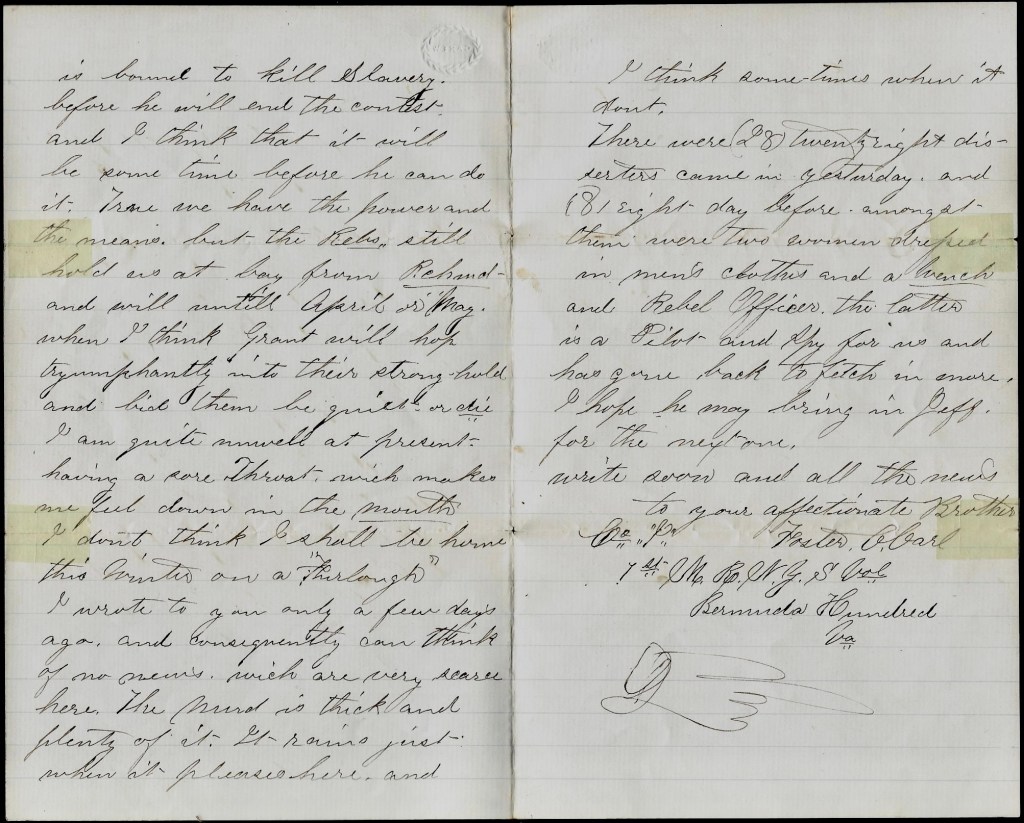 is bound to kill Slavery.
before he will end the contst.
and I think that it will
be some time before he can do
it. True we have the power and
the means. but the Rebs,, still
hold us at bay from Richmd-
and will untill April or May.
when I think Grant will hop
tryumphantly into their strong-hold
and bid them be quiet- or die
I am quite unwell at present.
having a sore Throat. wich makes
me feel down in the mouth
I dont think I shall be home
this Winter on a "Furlough"
I wrote to you only a few days
ago. and consequently can think
of no news. wich are very scarce
here. The Mud is thick and
plenty of it. It rains just
when it pleases here. and
I think some-times when it
dont.
There were (28) twenty eight dis-
serters came in yesturday. and
(8) eight day before. amongst
them were two women dressed
in men's clothes and a wench
and Rebel Officer. the latter
is a Pilot and Spy for us and
has gone back to fetch in more.
I hope he may bring in Jeff.
for the next one.
write soon and all the news
to your affectionate Brother
Foster. C. Carl
Co
7th N. Y. S Vol
Bermuda Hundred
Va